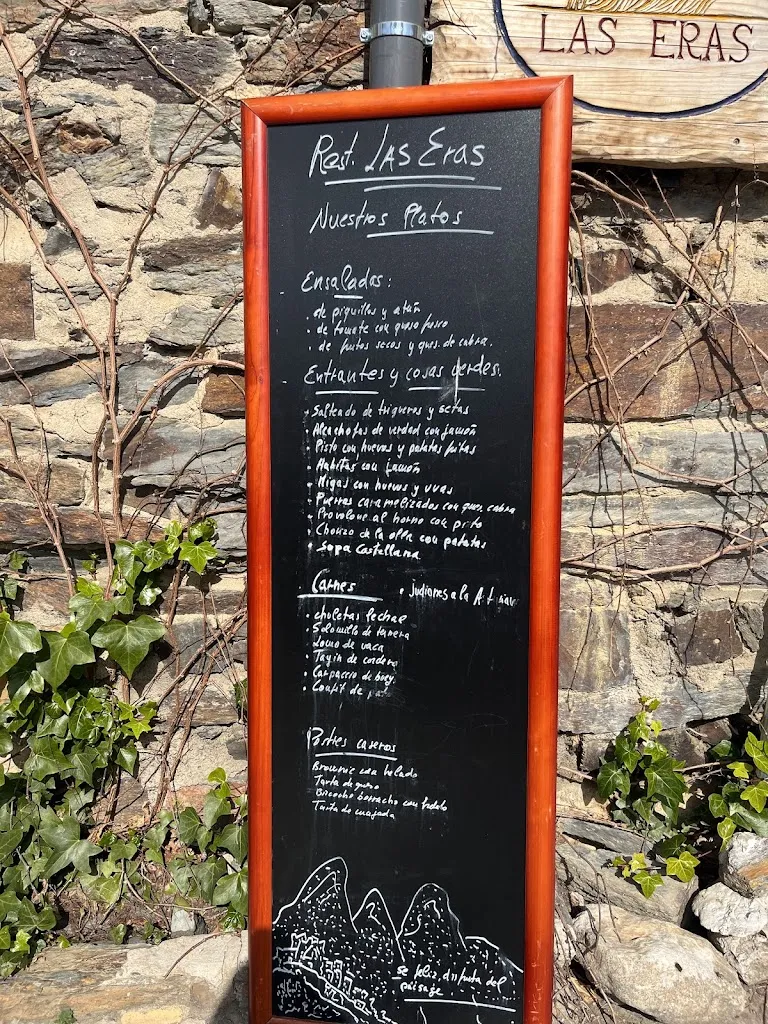 LAS ERAS
Rest. LAS Eras
Nuestros Platos
Ensaladas:
. de piquillos y atún
. de tomate con queso fresco
. de frutos secos y ques. de cabra.
Entrantes y cosas verdes.
. Salteado de trigueros y setas
. Alcachofas de verdad con jamón
. Pisto con huevos y patatas fritas
. Habitas con jamón
. Migas con huevos y uvas
. Puerros caramelizados con ques. cabra
. Provolone al horno con pisto
. Chorizo de la olla con patatas
. Sopa Castellana
Carnes
. Judiones a la
. chuletas lechae
. Solomillo de ternera
. Lomo de vaca
. Tayin de cordero
. Carpaccio de buey.
. Confit de pato
Postres caseros
Brownie con helado
Tarta de queso
Brioche borracho con helado
Tarta de cuajada
se feliz, disfruta del
paisaje